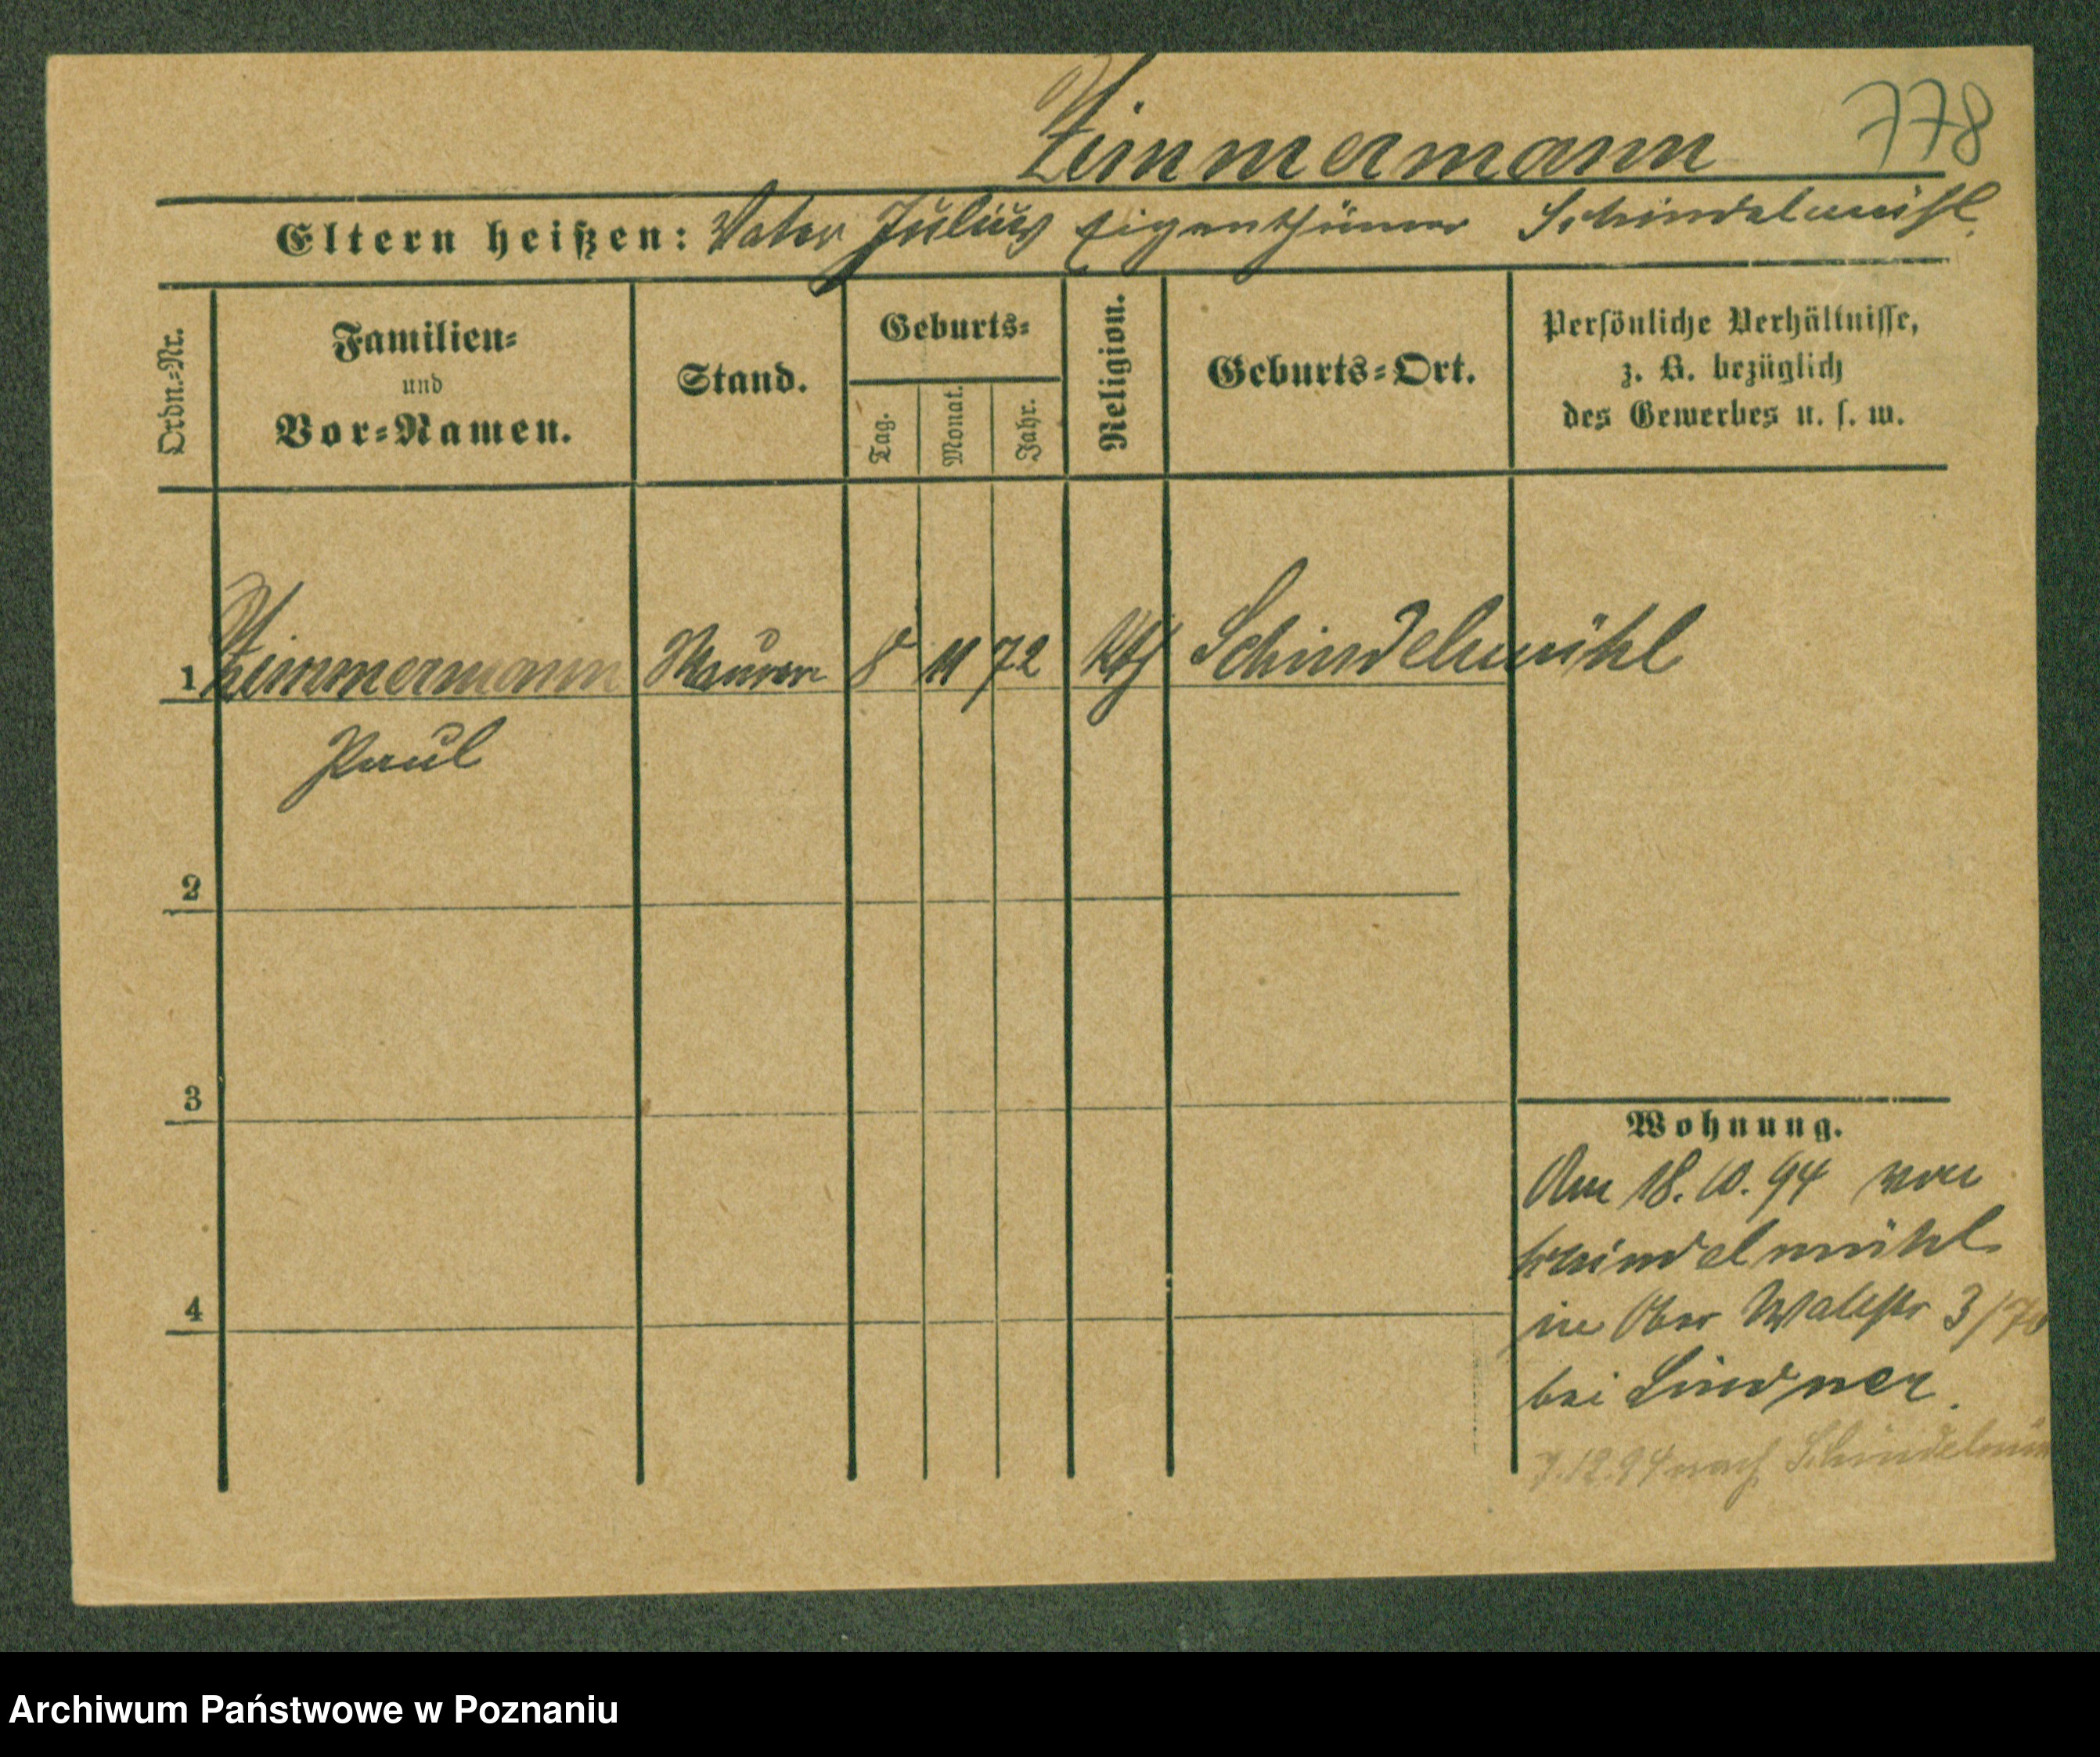 Zimmermann 778
Eltern heißen: Vater Julius Eigenthümer Schindelmühl.
Ordn.=Nr.
Familien=
und
Vor=Namen.
Stand.
Geburts=
Tag.
Monat.
Jahr.
Religion.
Geburts=Ort.
Persönliche Verhältnisse,
z. B. bezüglich
des Gewerbes u. s. w.
1 Zimmermann Maurer 8 11 72 kth Schindelmühl
Paul
2
3
4
Wohnung.
Am 18. 10. 94 von
Schindelmühl
in Ober Wallstr 3/70
bei Lindner.
7.12.94 nach Schindelmüh
Archiwum Państwowe w Poznaniu